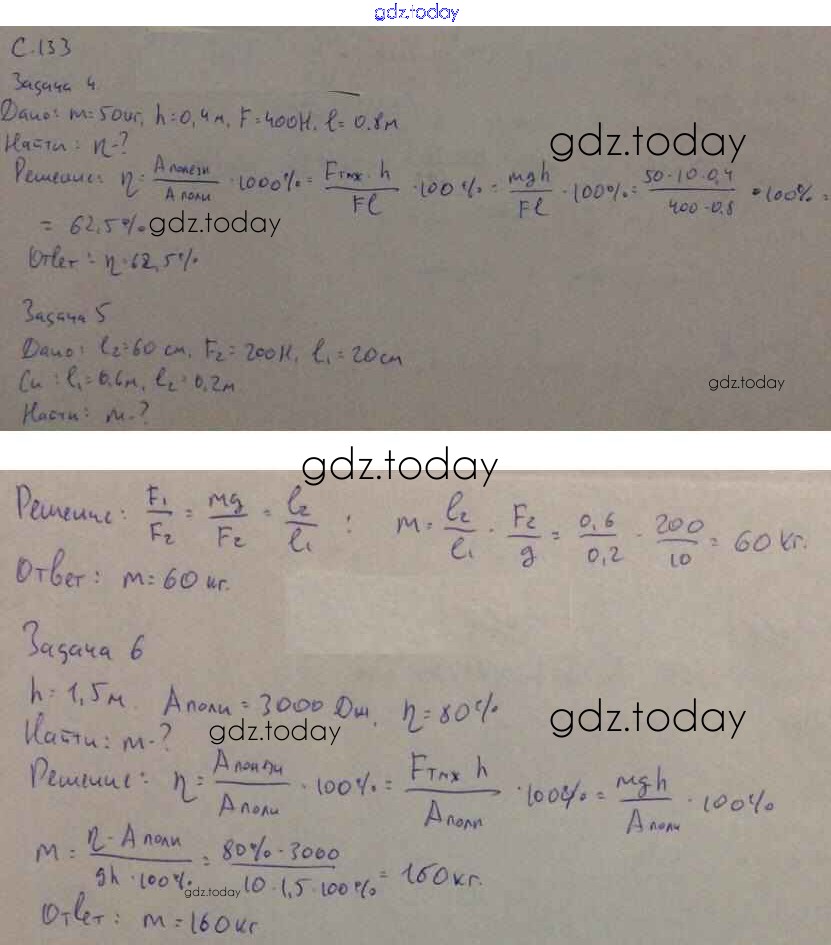 gdz.today
С.133
Задача 4
Дано: m=50кг, h=0,4м, F=400Н, l=0.8м
Найти: η-?
gdz.today
Решение: η = Aполезн / Aполн · 1000% = Fтяж · h / Fl · 100% = mgh / Fl · 100% = 50·10·0,4 / 400·0,8 · 100% =
= 62,5% gdz.today
Ответ: η=62,5%
Задача 5
Дано: l₂=60 см, F₂=200Н, l₁=20см
Си: l₁=0.6м, l₂=0,2м
gdz.today
Найти: m-?
gdz.today
Решение: F₁ / F₂ = mg / F₂ = l₂ / l₁ ; m = l₂ / l₁ · F₂ / g = 0,6 / 0,2 · 200 / 10 = 60 кг.
Ответ: m=60 кг.
Задача 6
h=1,5м. Aполн = 3000 Дж, η=80%
gdz.today
Найти: m-?
gdz.today
Решение: η = Aполезн / Aполн · 100% = Fтяж h / Aполн · 100% = mgh / Aполн · 100%
m = η·Aполн / gh·100% = 80%·3000 / 10·1,5·100% = 160кг.
gdz.today
Ответ: m=160кг